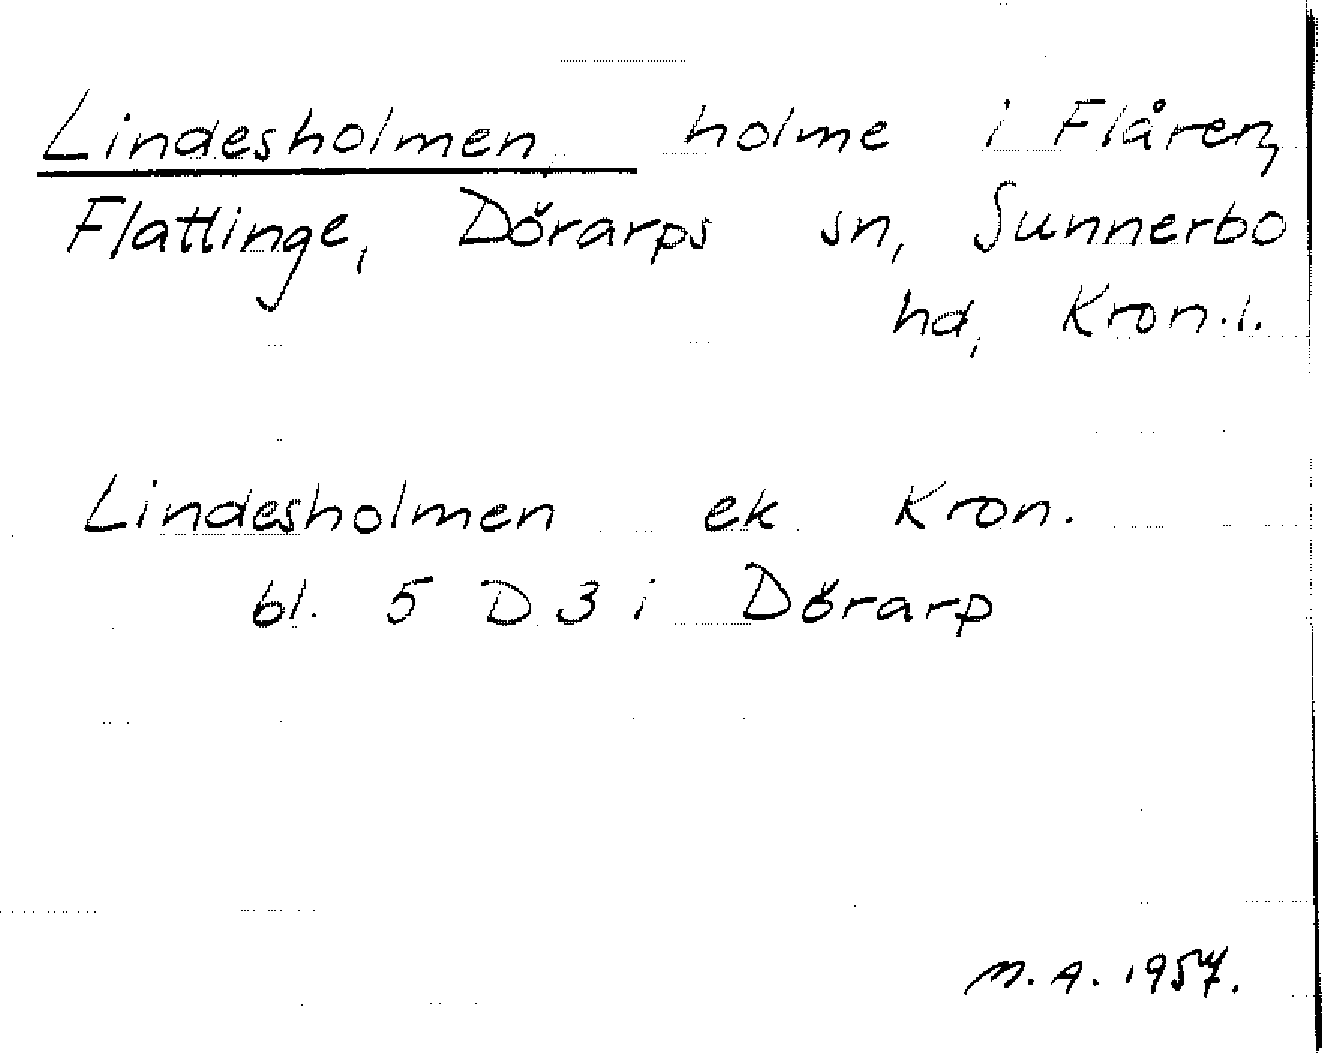 Lindesholmen, holme i Flåren,
Flattinge, Dörarps sn, Sunnerbo
hd, Kron.l.
Lindesholmen ek Kron.
bl. 5 D 3 i Dörarp
M.A. 1957.